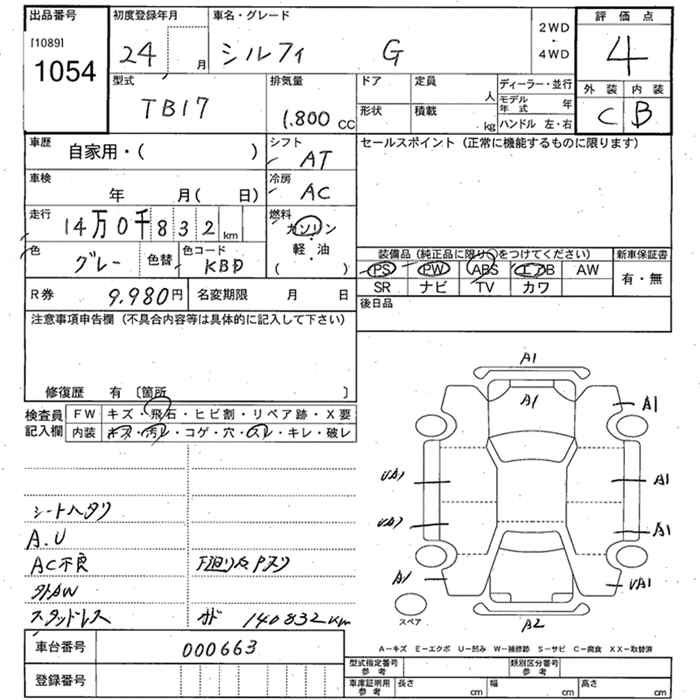 出品番号
[1089]
1054
初度登録年月
24 月
車名・グレード
シルフィ G
2WD
・
4WD
評価点
4
外装 内装
C B
型式
TB17
排気量
1.800 cc
ドア
定員
人
形状
積載
kg
ディーラー・並行
モデル年式 年
ハンドル 左・右
車歴
自家用・( )
シフト
AT
セールスポイント(正常に機能するものに限ります)
車検
年 月( 日)
冷房
AC
走行
14万0千832km
燃料
ガソリン
・
軽油
( )
色
グレー
色替
色コード
KBD
装備品(純正品に限り○をつけてください)
新車保証書
PS PW ABS エアB AW
有・無
SR ナビ TV カワ
R券
9.980円
名変期限 月 日
後日品
注意事項申告欄(不具合内容等は具体的に記入して下さい)
修復歴 有〔箇所 〕
検査員
記入欄
FW キズ・飛石・ヒビ割・リペア跡・X要
内装 キズ・汚レ・コゲ・穴・スレ・キレ・破レ
シートヘタリ
A.U
AC不良
外AW
スタッドレス
140832km
A1
A1
A1
UA1
A1
A1
A1
UA1
A2
スペア
A-キズ E-エクボ U-凹み W-補修跡 S-サビ C-腐食 XX-取替済
車台番号
000663
登録番号
型式指定番号
参考
類別区分番号
参考
車庫証明用
参考
長さ cm
幅 cm
高さ cm